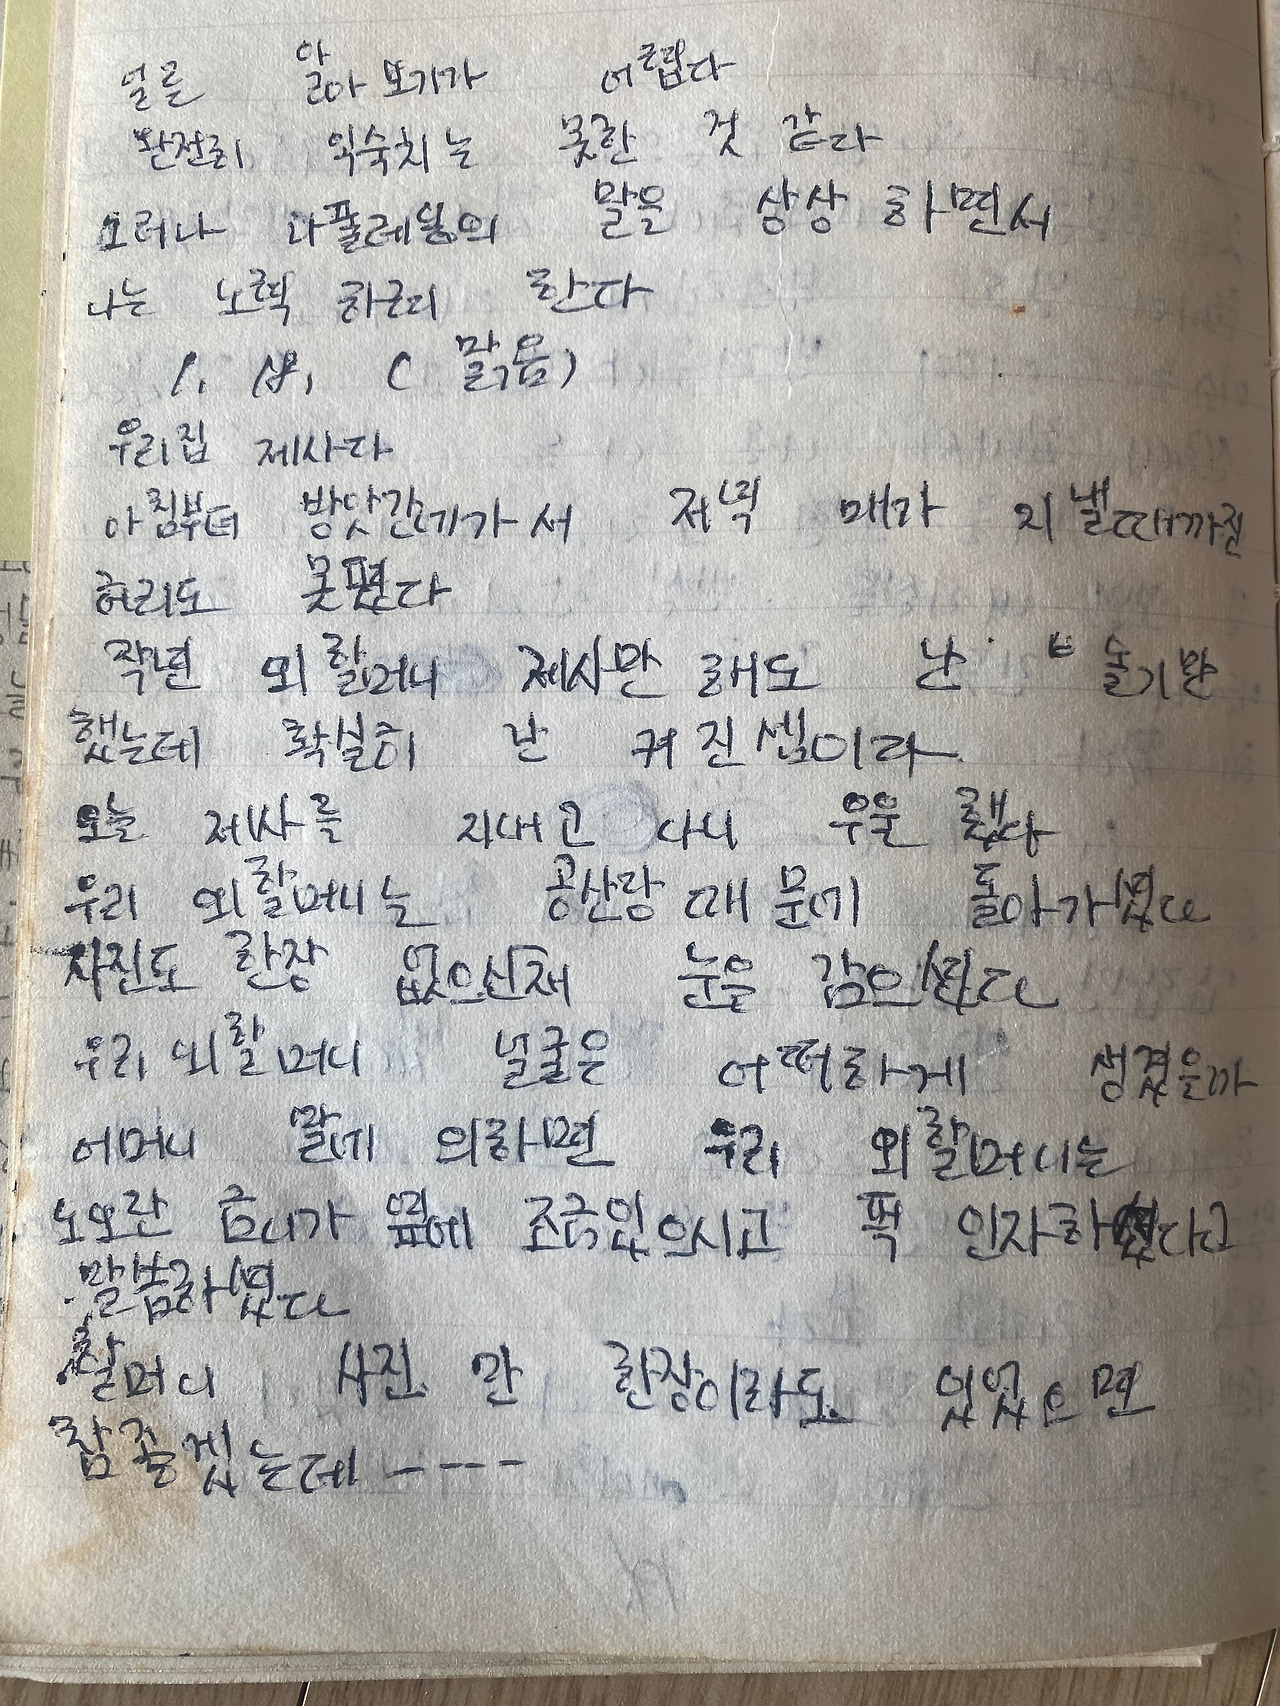 얼른 알아 보기가 어렵다
완전히 익숙치는 못한 것 같다
그러나 나풀레옹의 말을 상상 하면서
나는 노력 하려 한다
1. 18, ( 맑음)
우리집 제사다
아침부터 방앗간에가서 저녁 매가 지낼때까진
허리도 못폈다
작년 외할머니 제사만 해도 난 술기만
했는데 확실히 난 커진셈이다
오늘 제사를 지내고 나니 우울 했다
우리 외할머니는 공산당 때문에 돌아가셨다
사진도 한장 없으신채 눈을 감으셨다
우리 외할머니 얼굴은 어떠하게 생겼을까
어머니 말에 의하면 우리 외할머니는
노오란 금니가 옆에 조금있으시고 퍽 인자하셨다고
말씀하셨다
할머니 사진 만 한장이라도 있었으면
참좋겠는데 ----